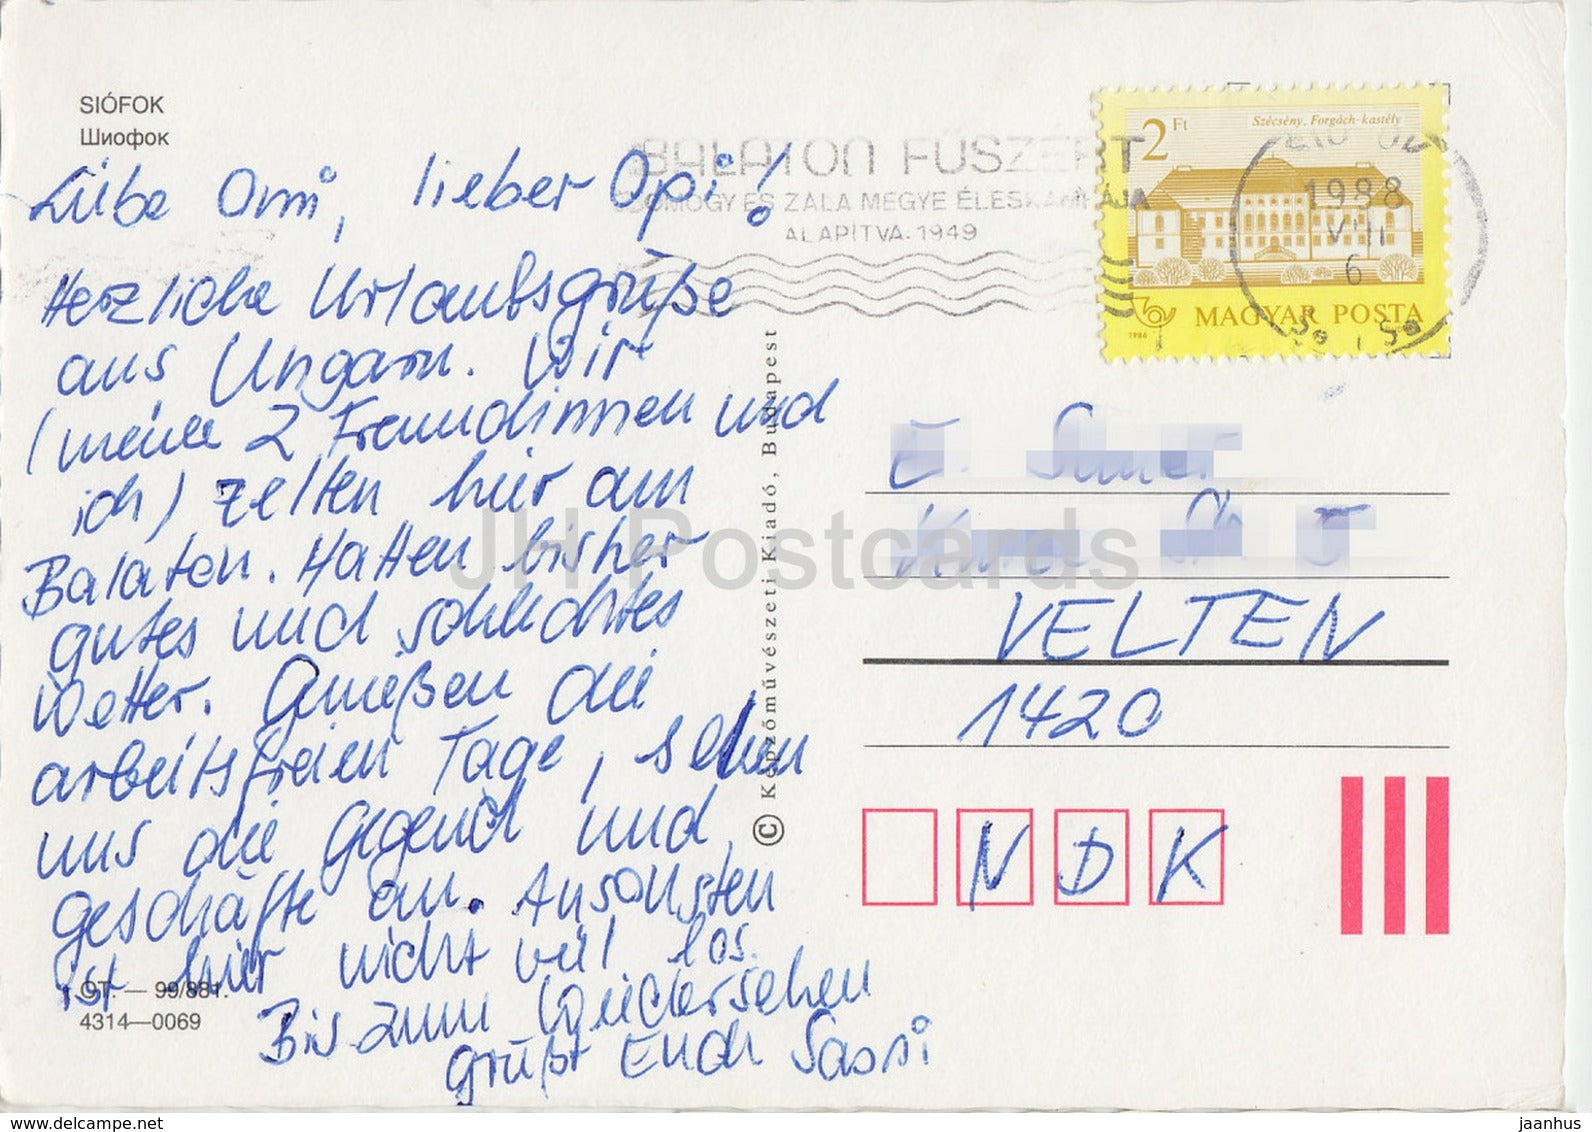 SIÓFOK
Шиофок
BALATON FŰSZÉRT
SOMOGY ÉS ZALA MEGYE ÉLÉSKAMRÁJA
ALAPÍTVA: 1949
2 Ft
Szécsény, Forgách-kastély
1988
VIII
6
MAGYAR POSTA
1986
Liebe Omi, lieber Opi!
Herzliche Urlaubsgrüße
aus Ungarn. Wir
(meine 2 Freundinnen und
ich) zelten hier am
Balaton. Hatten bisher
gutes und schlechtes
Wetter. Genießen die
arbeitsfreien Tage, sehen
uns die Gegend und
Geschäfte an. Ansonsten
ist hier nicht viel los.
Bis zum Wiedersehen
grüßt Euch Sassi
© Képzőművészeti Kiadó, Budapest
VELTEN
1420
NDK
JH Postcards
QT. — 99/881.
4314—0069
www.delcampe.net
jaanhus